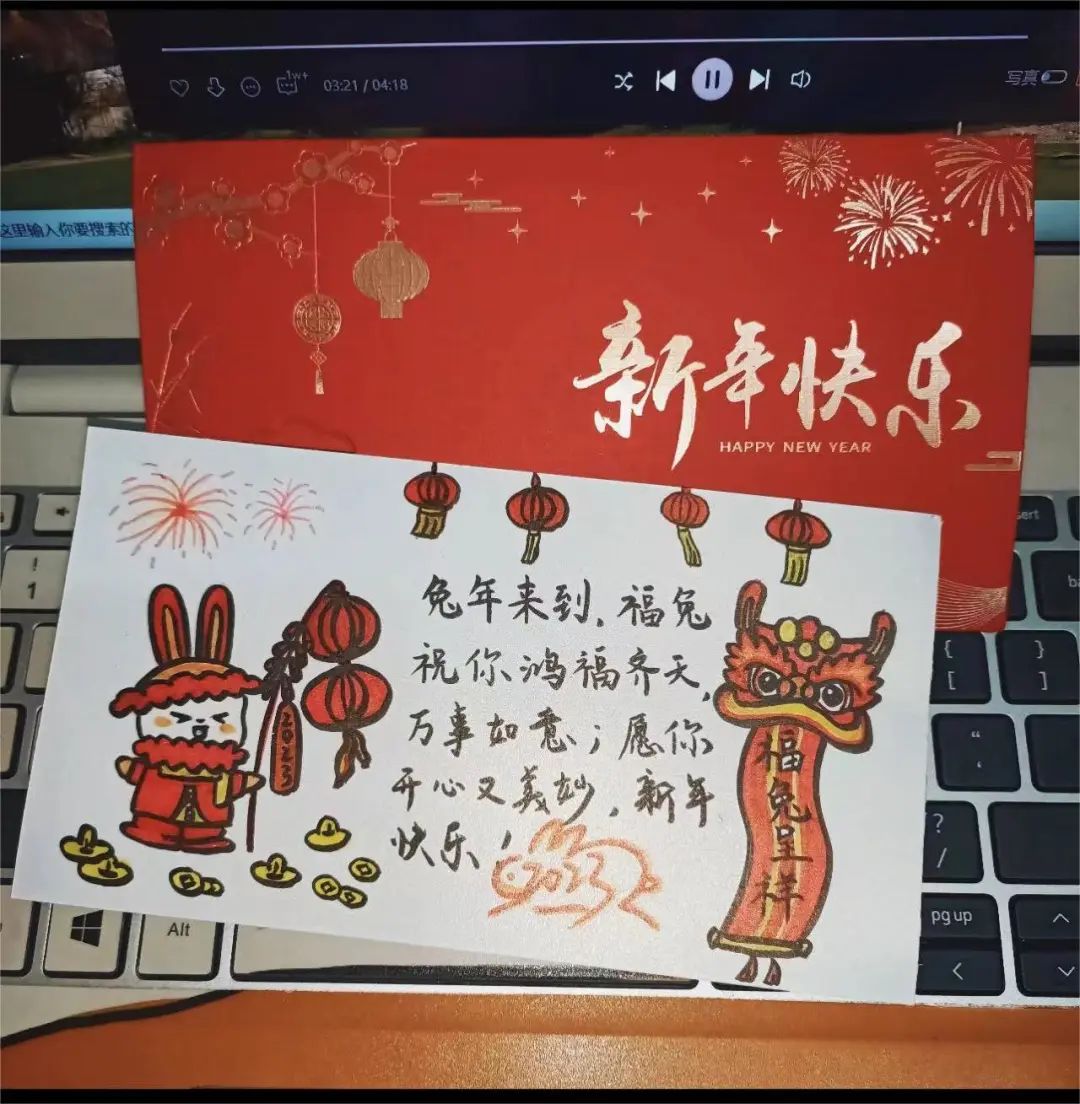 1w+
03:21 / 04:18
写真
这里输入你要搜索的
新年快乐
HAPPY NEW YEAR
兔年来到、福兔
祝你鸿福齐天,
万事如意;愿你
开心又美妙,新年
快乐!
2023
2023
福兔呈祥
! 1
Alt
{ [
} ]
“ ‘
? /
pg up